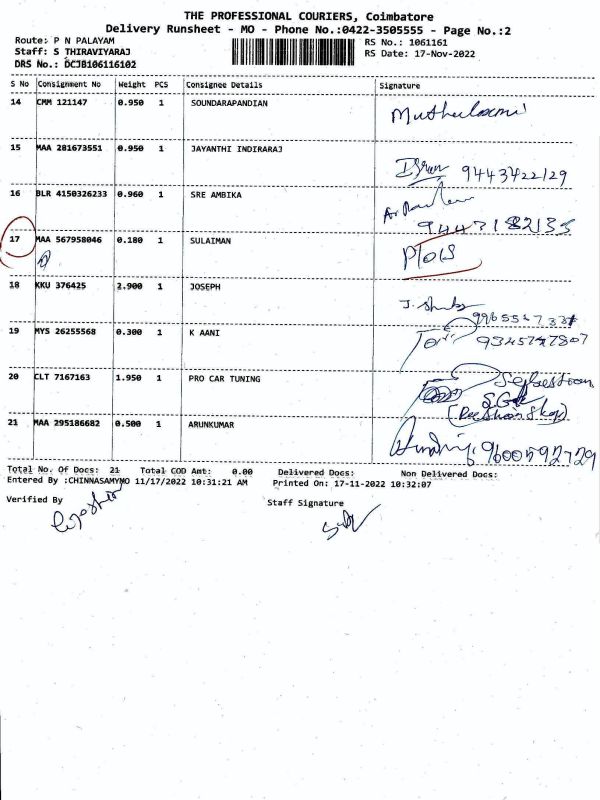 THE PROFESSIONAL COURIERS, Coimbatore
Delivery Runsheet - MO - Phone No.:0422-3505555 - Page No.:2
Route: P N PALAYAM
RS No.: 1061161
Staff: S THIRAVIYARAJ
RS Date: 17-Nov-2022
DRS No.: DCJB106116102
S No Consignment No Weight PCS Consignee Details Signature
14 CMM 121147 0.950 1 SOUNDARAPANDIAN
15 MAA 281673551 0.950 1 JAYANTHI INDIRARAJ 9443422129
16 BLR 4150326233 0.960 1 SRE AMBIKA
9443182135
17 MAA 567958046 0.180 1 SULAIMAN
18 KKU 376425 2.900 1 JOSEPH
19 MYS 26255568 0.300 1 K AANI 9345747807
20 CLT 7167163 1.950 1 PRO CAR TUNING
21 MAA 295186682 0.500 1 ARUNKUMAR 9600592729
Total No. Of Docs: 21 Total COD Amt: 0.00 Delivered Docs: Non Delivered Docs:
Entered By :CHINNASAMYMO 11/17/2022 10:31:21 AM Printed On: 17-11-2022 10:32:07
Verified By Staff Signature